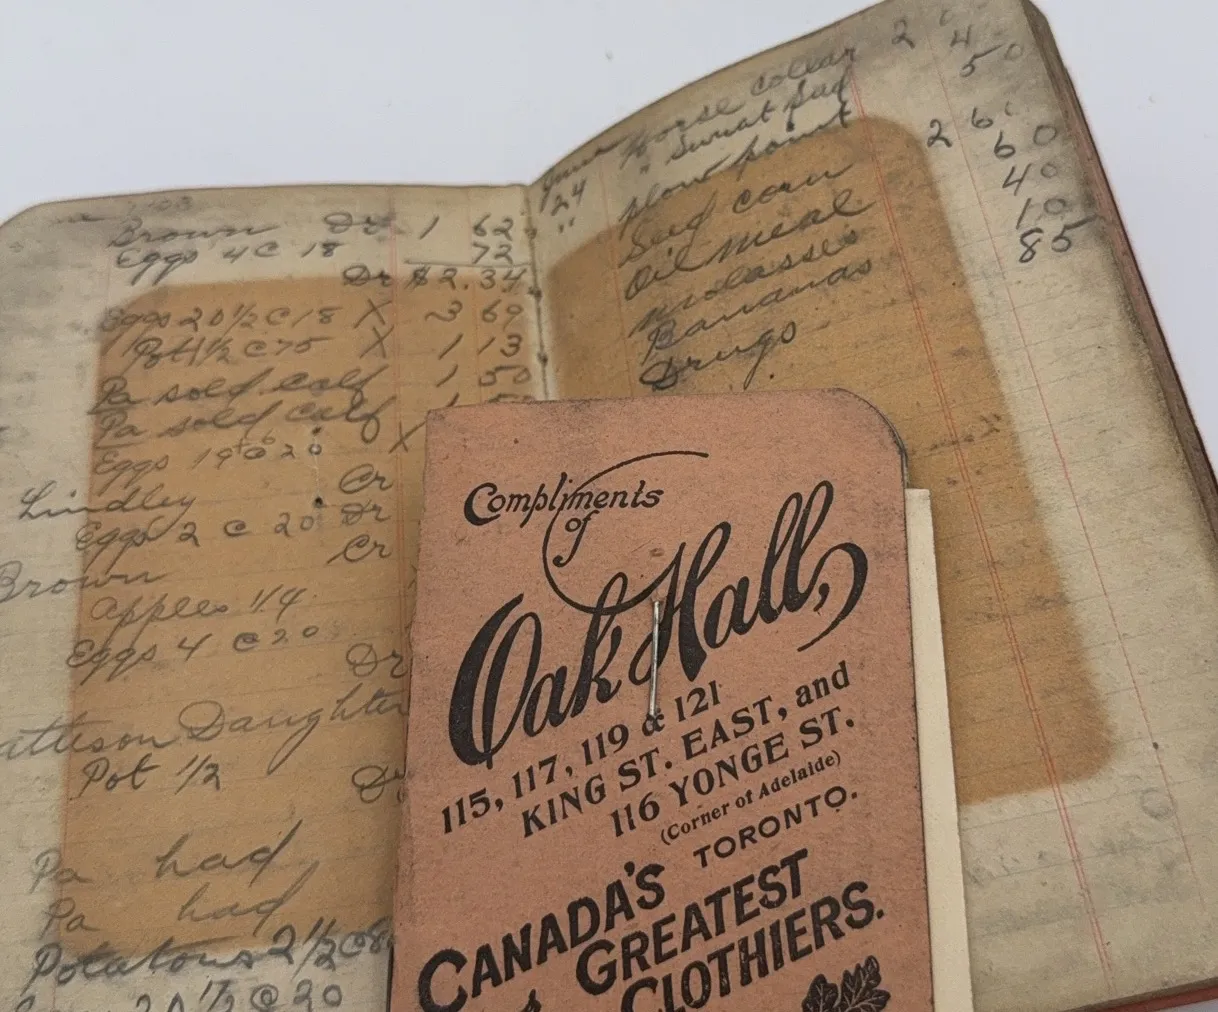 Brown Dr 1 62
Eggs 4 C 18 72
Dr $2.34
Eggs 20 1/2 C 18 X 3 69
Pot 1 1/2 C 75 X 1 13
Pa sold calf 1 50
Pa sold calf 1 50
Eggs 19 @ 20 X
Lindley Cr
Eggs 2 C 20 Dr
Brown Cr
apples 1/4
Eggs 4 C 20
Dr
Daughter
Pot 1/2
Pa had
Pa had
Potatous 2 1/2 @
20 1/2 @ 20
June Horse Collar 2 4
24 " Sweat pad 50
" plow point
Seed corn 2 6
Oil meal 60
molasses 40
Bananas 10
Drugs 85
Compliments
of
Oak Hall,
115, 117, 119 & 121
KING ST. EAST, and
116 YONGE ST.
(Corner of Adelaide)
TORONTO.
CANADA'S
GREATEST
CLOTHIERS.